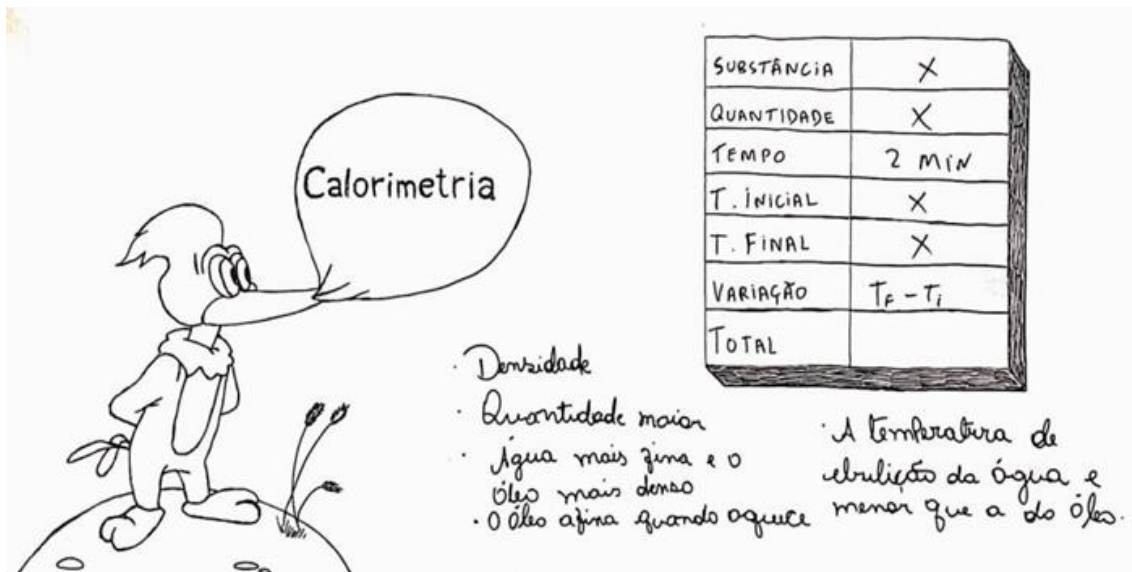 Calorimetria
SUBSTÂNCIA X
QUANTIDADE X
TEMPO 2 MIN
T. INICIAL X
T. FINAL X
VARIAÇÃO TF - Ti
TOTAL
· Densidade
· Quantidade maior
· Água mais fina e o
óleo mais denso
· O Óleo afina quando aquece
· A temperatura de
ebulição da água e
menor que a do Óleo.